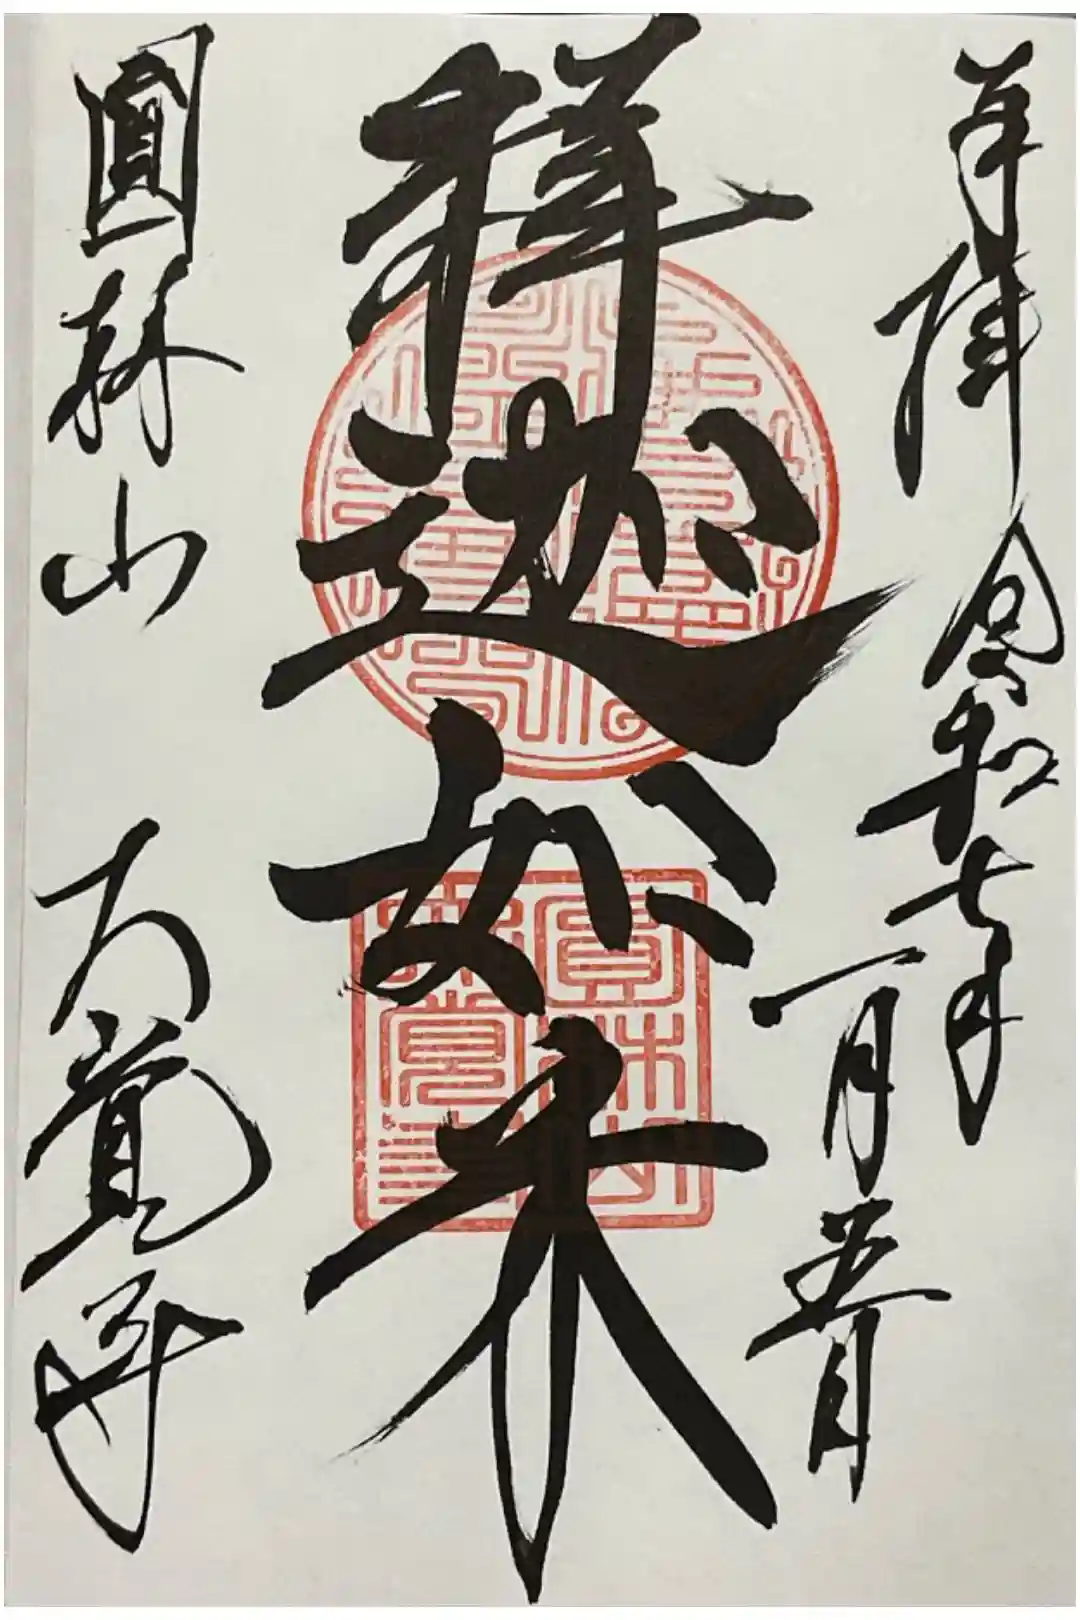 奉拝 令和七年
一月五日
釋迦如来
圓林山 万覚寺